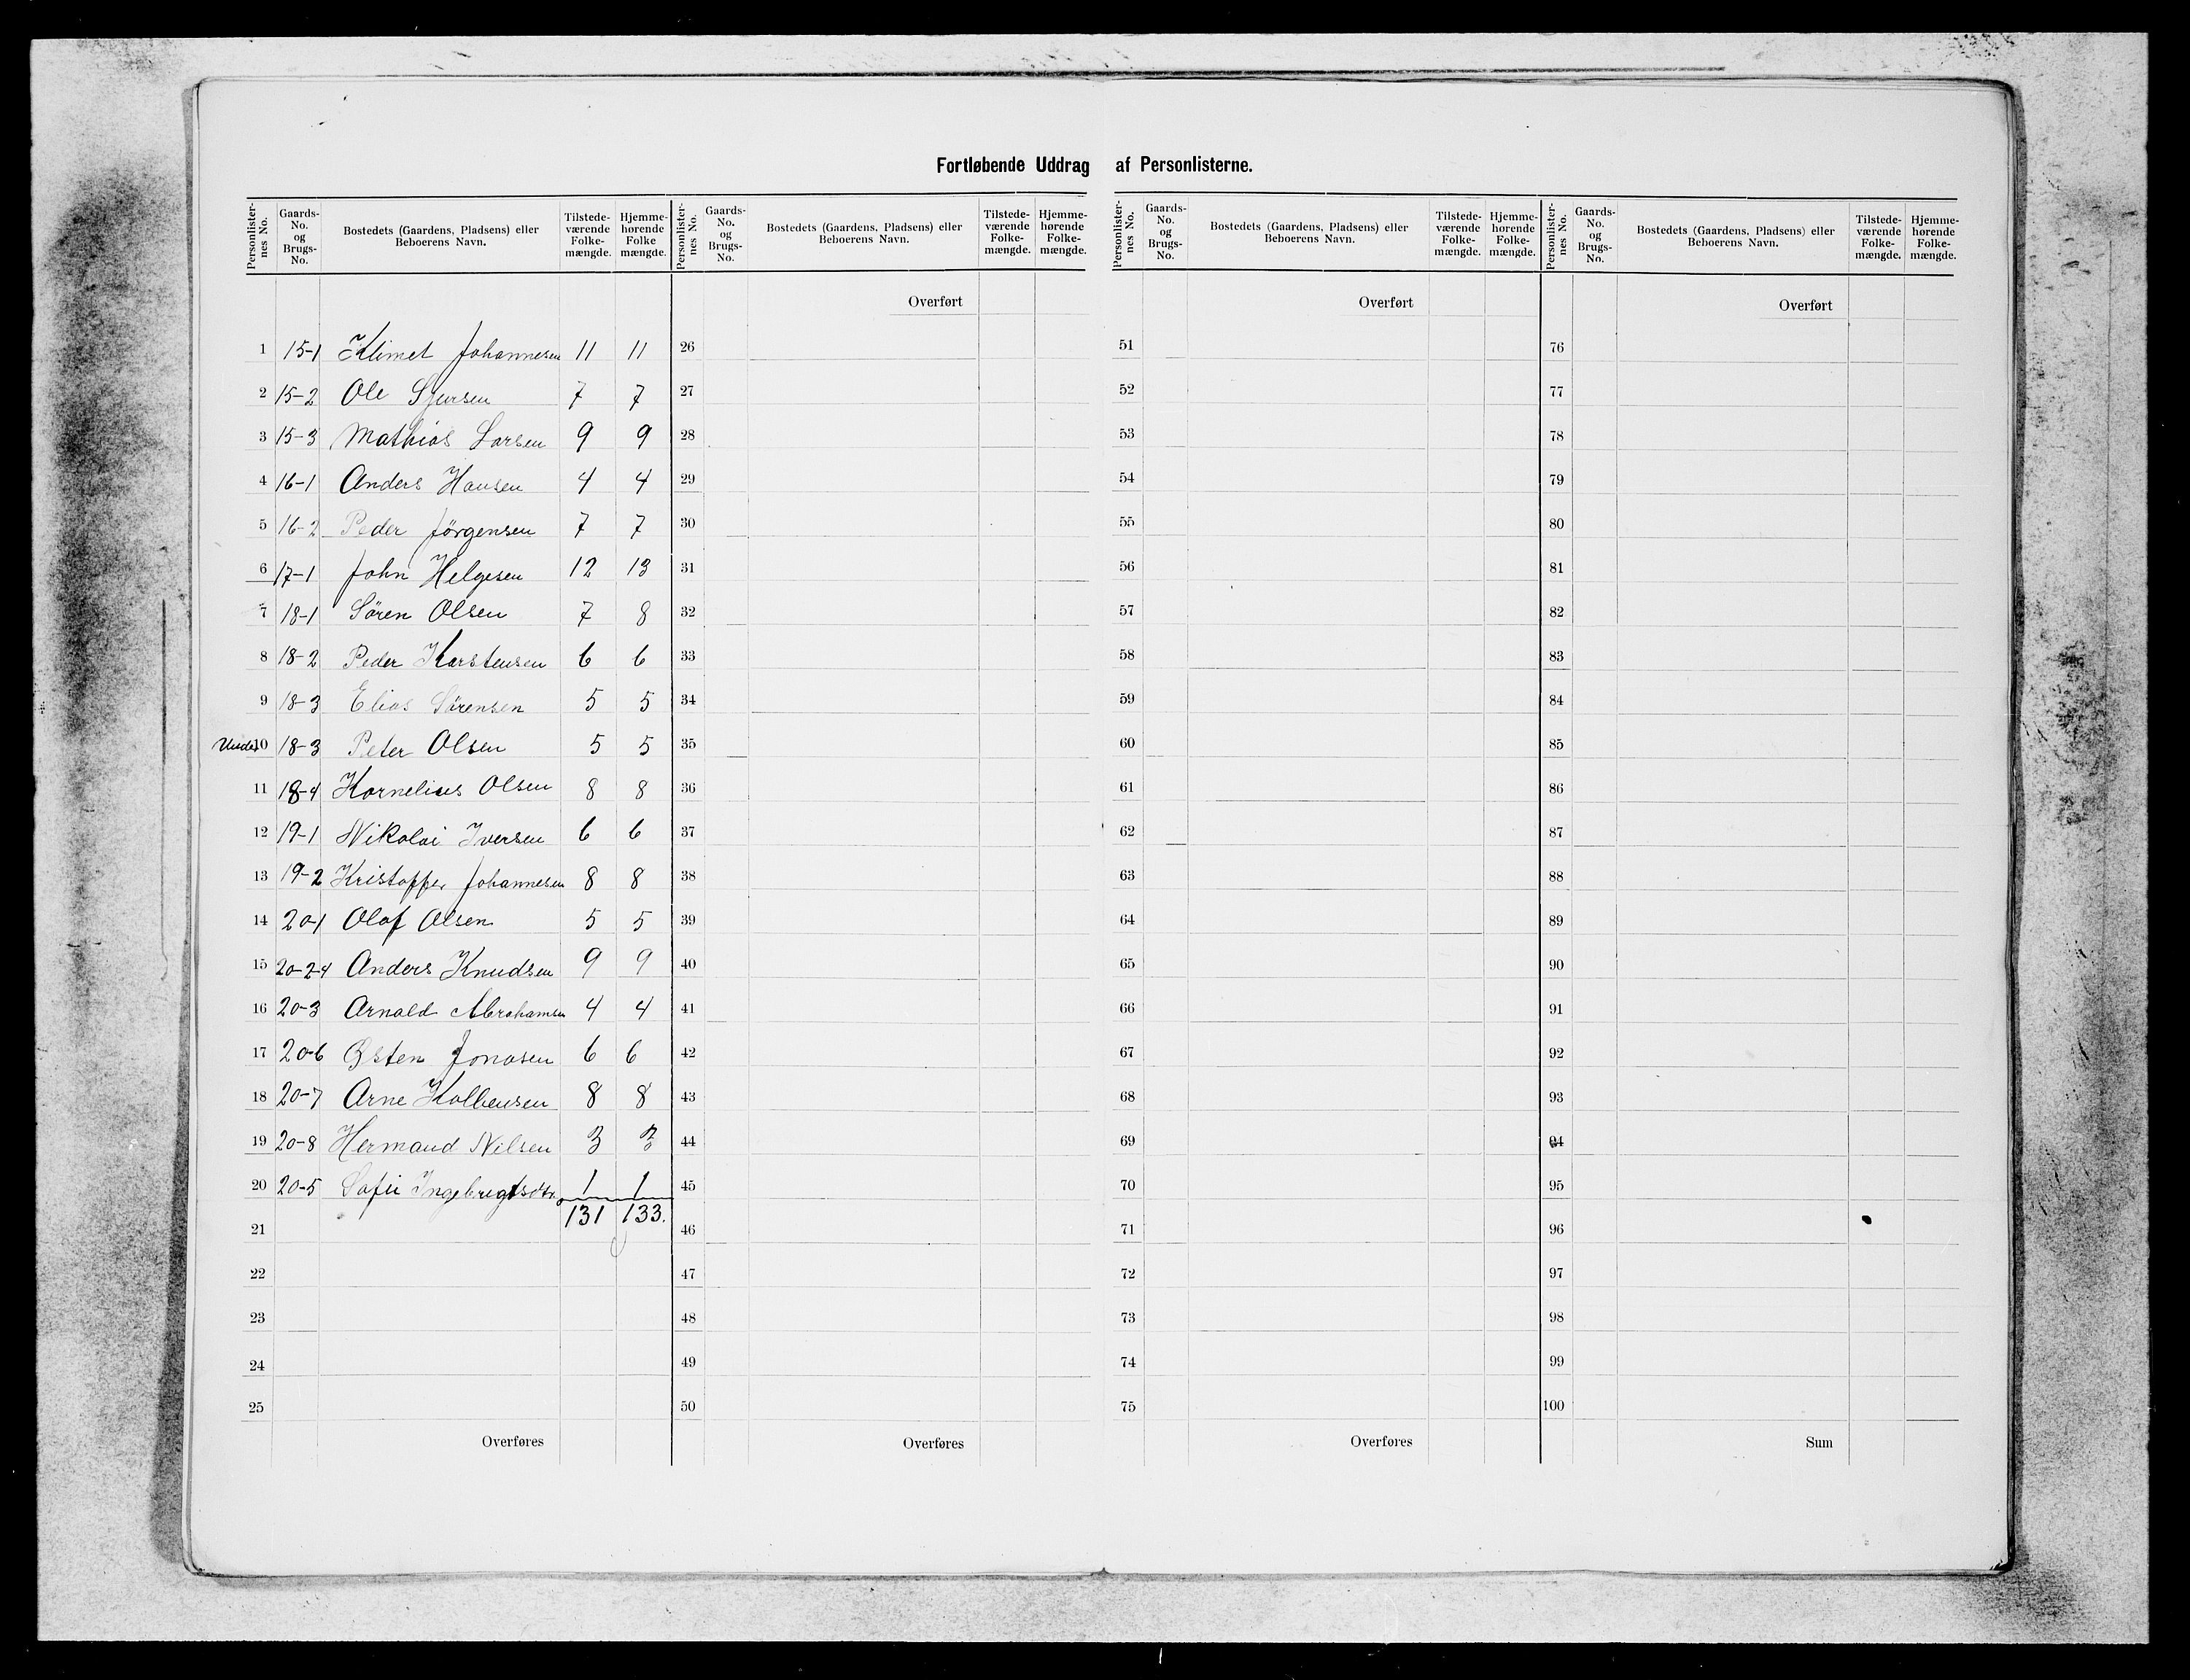 Fortløbende Uddrag af Personlisterne.
Personlister-nes No. Gaards-No. og Brugs-No. Bostedets (Gaardens, Pladsens) eller Beboerens Navn. Tilstede-værende Folke-mængde. Hjemme-hørende Folke mængde. Personlister-nes No. Gaards-No. og Brugs-No. Bostedets (Gaardens, Pladsens) eller Beboerens Navn. Tilstede-værende Folke-mængde. Hjemme-hørende Folke-mængde. Personlister-nes No. Gaards-No. og Brugs-No. Bostedets (Gaardens, Pladsens) eller Beboerens Navn. Tilstede-værende Folke-mængde. Hjemme-hørende Folke-mængde. Personlister-nes No. Gaards-No. og Brugs-No. Bostedets (Gaardens, Pladsens) eller Beboerens Navn. Tilstede-værende Folke-mængde. Hjemme-hørende Folke-mængde.
Overført Overført Overført
1 15-1 Klimet Johannesen 11 11 26 51 76
2 15-2 Ole Sjursen 7 7 27 52 77
3 15-3 Mathias Larsen 9 9 28 53 78
4 16-1 Anders Hansen 4 4 29 54 79
5 16-2 Peder Jörgensen 7 7 30 55 80
6 17-1 John Helgesen 12 13 31 56 81
7 18-1 Sören Olsen 7 8 32 57 82
8 18-2 Peder Karstensen 6 6 33 58 83
9 18-3 Elias Sörensen 5 5 34 59 84
Under 10 18-3 Peter Olsen 5 5 35 60 85
11 18-4 Kornelius Olsen 8 8 36 61 86
12 19-1 Nikolai Iversen 6 6 37 62 87
13 19-2 Kristoffer Johannesen 8 8 38 63 88
14 20-1 Olaf Olsen 5 5 39 64 89
15 20-2-4 Anders Knudsen 9 9 40 65 90
16 20-3 Arnold Abrahamsen 4 4 41 66 91
17 20-6 Østen Jonasen 6 6 42 67 92
18 20-7 Arne Kolbensen 8 8 43 68 93
19 20-8 Hermand Nilsen 3 3 44 69 94
20 20-5 Sofie Ingebregtsdtr. 1 1 45 70 95
131 133.
21 46 71 96
22 47 72 97
23 48 73 98
24 49 74 99
25 50 75 100
Overføres Overføres Overføres Sum